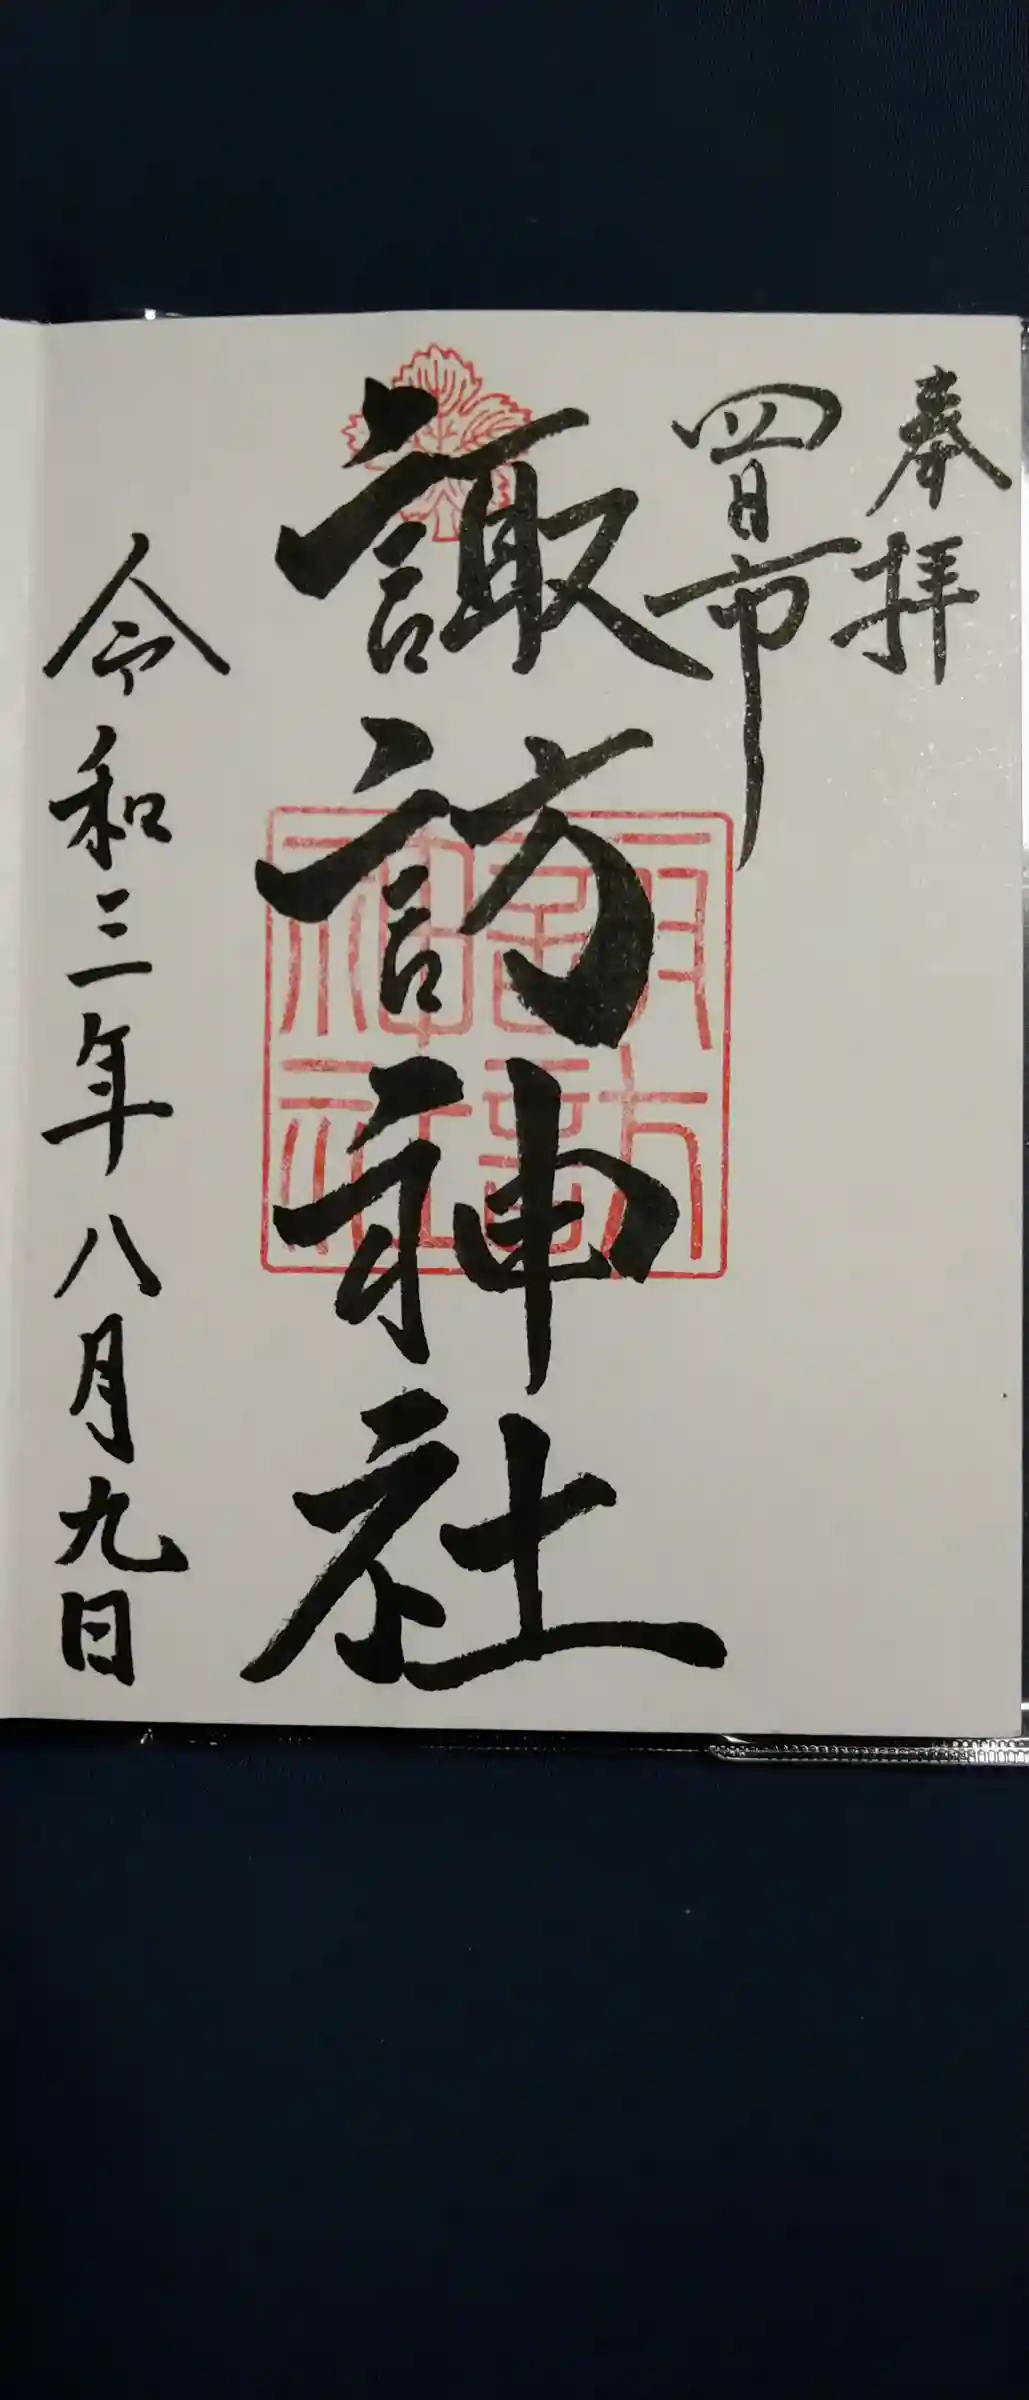 奉拝
四日市
諏訪神社
諏訪神社
令和三年八月九日